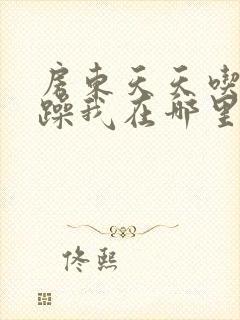 房东天天喫
躁我在哪里
佟熙